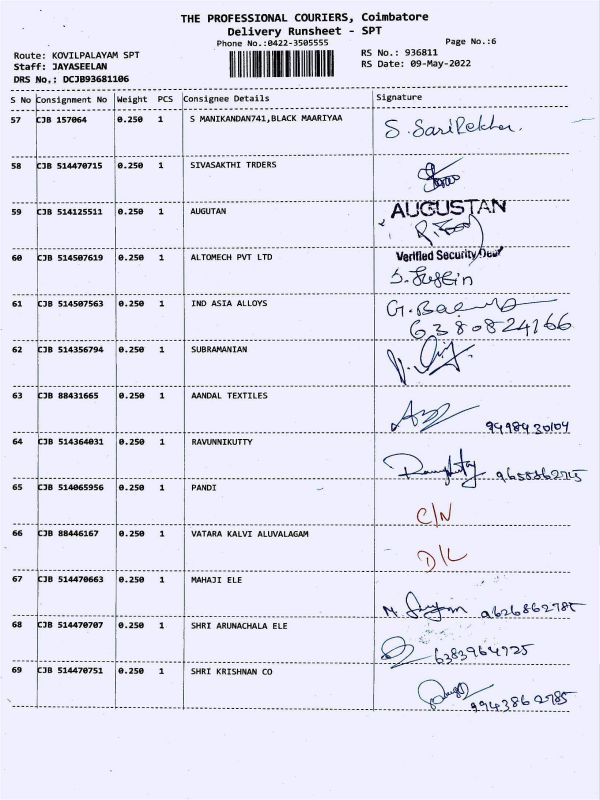 THE PROFESSIONAL COURIERS, Coimbatore
Delivery Runsheet - SPT
Phone No.:0422-3505555
Page No.:6
Route: KOVILPALAYAM SPT
RS No.: 936811
Staff: JAYASEELAN
RS Date: 09-May-2022
DRS No.: DCJB93681106
S No Consignment No Weight PCS Consignee Details Signature
57 CJB 157064 0.250 1 S MANIKANDAN741,BLACK MAARIYAA
S. Sarirekha.
58 CJB 514470715 0.250 1 SIVASAKTHI TRDERS
59 CJB 514125511 0.250 1 AUGUTAN
AUGUSTAN
60 CJB 514507619 0.250 1 ALTOMECH PVT LTD
Verified Security
61 CJB 514507563 0.250 1 IND ASIA ALLOYS
6380824166
62 CJB 514356794 0.250 1 SUBRAMANIAN
63 CJB 88431665 0.250 1 AANDAL TEXTILES
64 CJB 514364031 0.250 1 RAVUNNIKUTTY
65 CJB 514065956 0.250 1 PANDI
C/N
66 CJB 88446167 0.250 1 VATARA KALVI ALUVALAGAM
D/L
67 CJB 514470663 0.250 1 MAHAJI ELE
68 CJB 514470707 0.250 1 SHRI ARUNACHALA ELE
69 CJB 514470751 0.250 1 SHRI KRISHNAN CO
9943862785